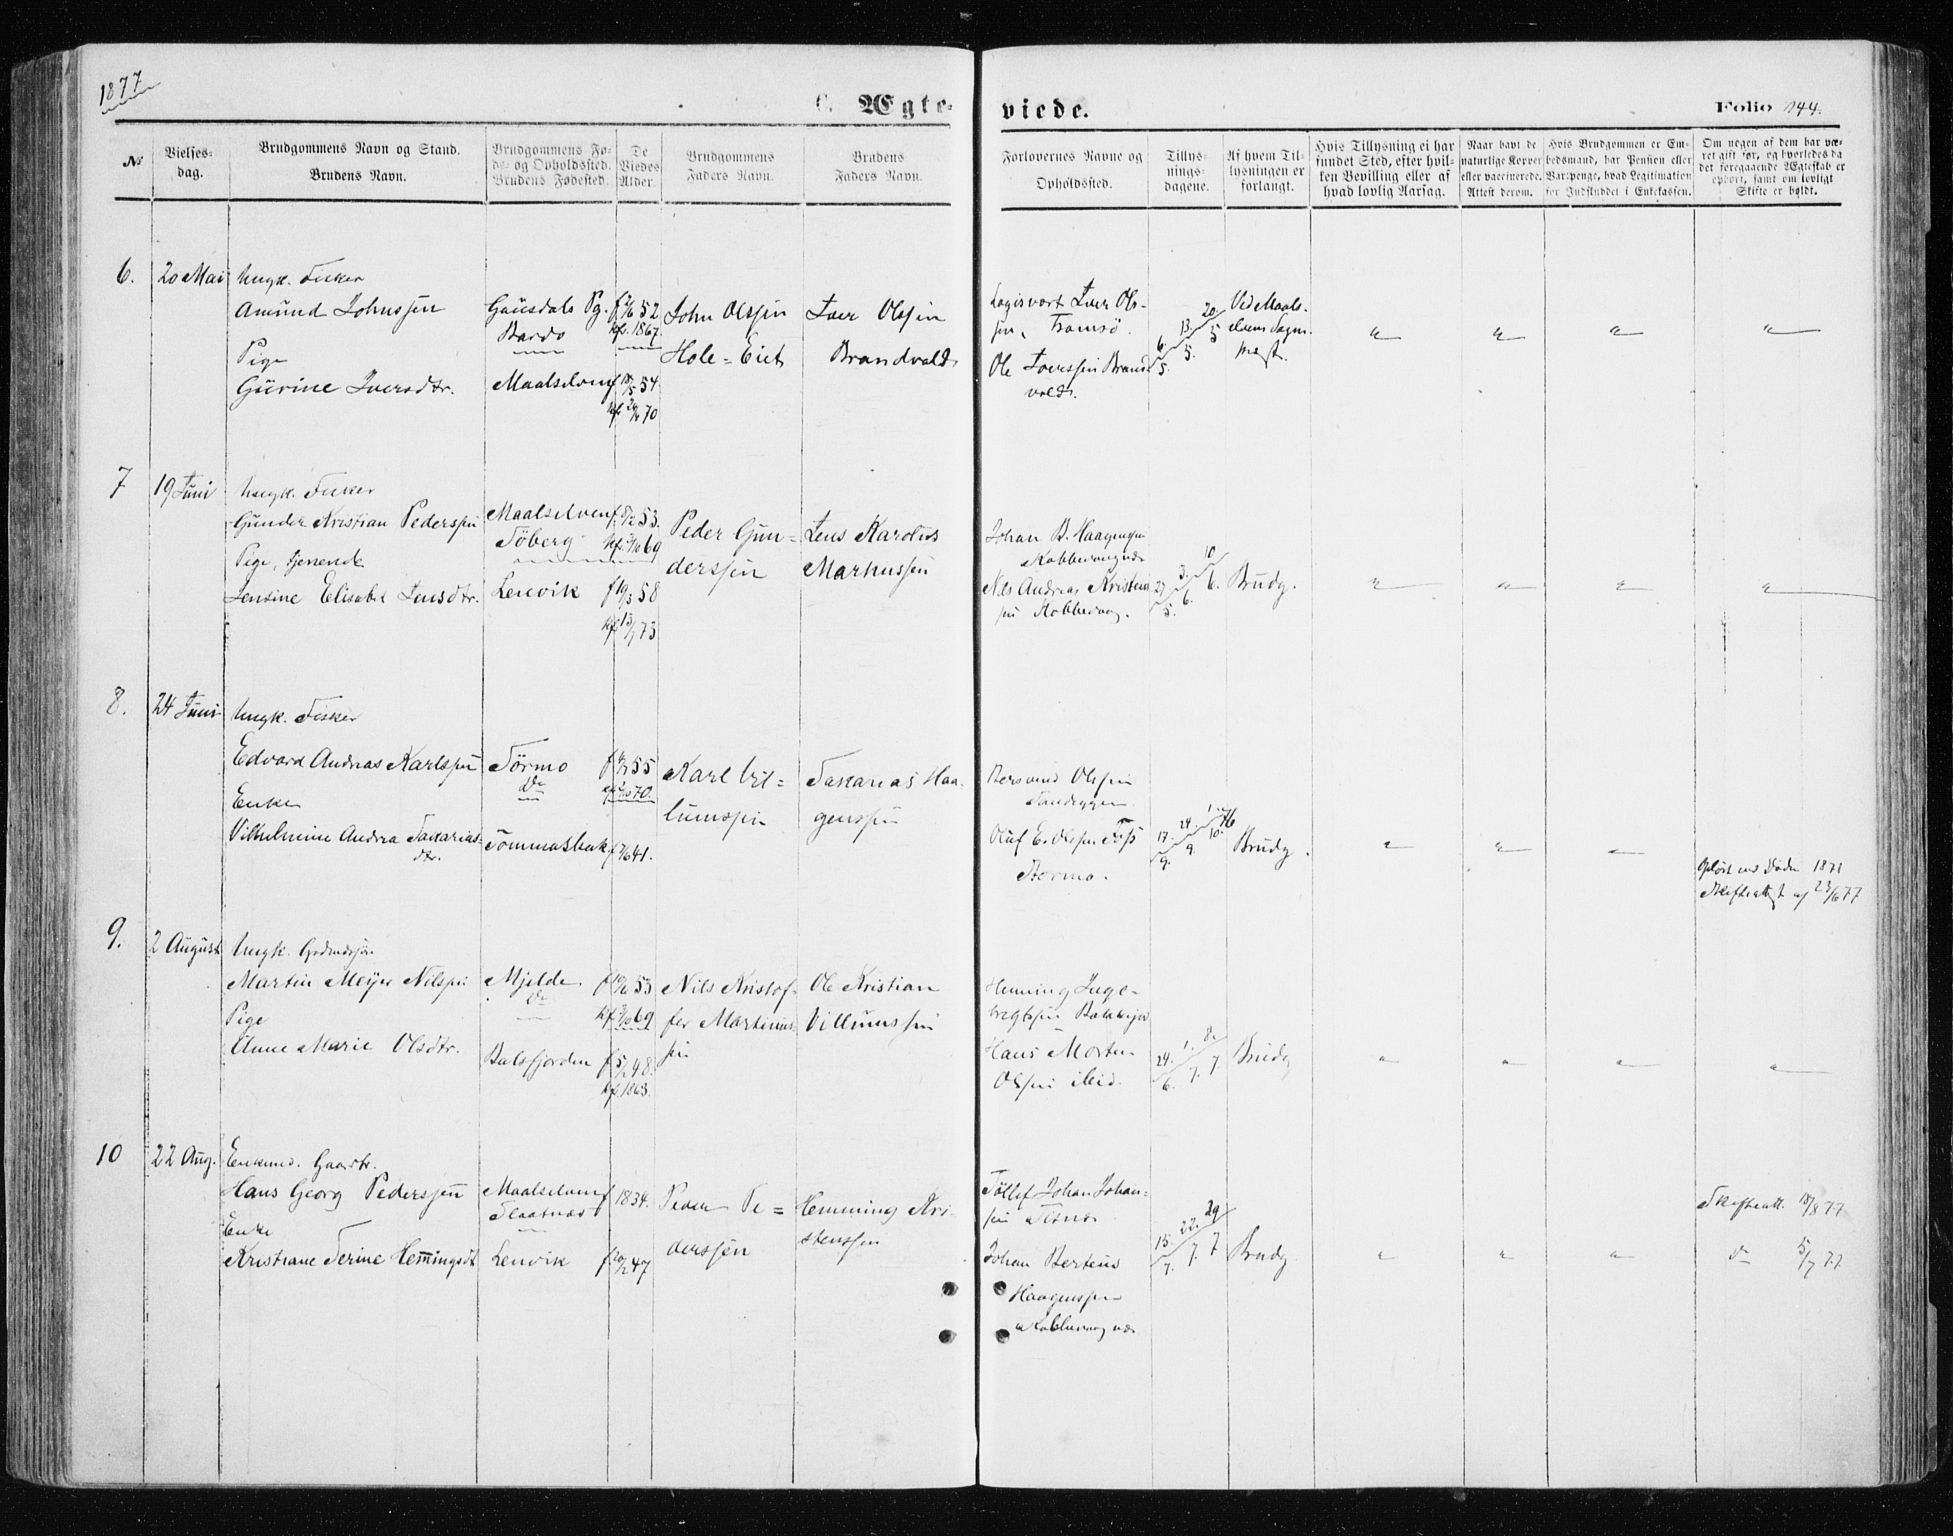 1877
C. Ægteviede.
Folio 144.
№
Vielses-
dag.
Brudgommens Navn og Stand.
Brudens Navn.
Brudgommens Fø-
de- og Opholdssted.
Brudens Fødested.
De
Viedes
Alder.
Brudgommens
Faders Navn.
Brudens
Faders Navn.
Forlovernes Navne og
Opholdssted.
Tillys-
nings-
dagene.
Af hvem Til-
lysningen er
forlangt.
Hvis Tillysning ei har
fundet Sted, efter hvil-
ken Bevilling eller af
hvad lovlig Aarsag.
Naar havt de
naturlige Kopper
eller vaccinerede.
Attest derom.
Hvis Brudgommen er En-
bedsmand, har Pension eller
Vartpenge, hvad Legitimation
for Indskuddet i Enkekassen.
Om nogen af dem har væ-
ret gift før, og hvorledes da
det foregaaende Ægteskab er
ophørt, samt om lovligt
Skifte er holdt.
6.
20 Mai
Ungk. Fisker
Amund Johnssen
Pige
Gurine Iversdtr.
Gausdals Pg.
Bardo
Maalselven
52
kf. 1867.
54
70
John Olssen
Hole-Eiet
Iver Olssen
Brandvold
Logisvert Iver Ols-
sen, Tromsø.
Ole Iverssen Brand-
vold.
6/5. 13/5. 20/5
Ved Maals-
elvens Sogne-
præst.
7
19 Juni
Ungk. Fisker
Gunder Kristian Pederssen
Pige, tjenende
Jensine Elisabet Jensdtr.
Maalselven
Lenvik
53.
69
f 19/3 58
73
Peder Gun-
derssen
Jens Karolus
Markussen
Johan B. Haagenssen
Kobbevaagnæs
Nils Andreas Kristens-
sen Kobbevaag.
27/5. 3/6. 10/6.
Brudg.
8.
24 Juni
Ungk. Fisker
Edvard Andreas Karlssen
Enke
Vilhelmine Andrea Sakarias-
dtr.
Do
55
70.
41.
Karl Vil-
lumssen
Sakarias Haa-
genssen
Olssen
Oluf E. Olssen
17/9. 24/9
Brudg.
Opløst ved Døden 1871
Skifteattest af 23/6 77
9.
2 August
Ungk.
Martin Meyer Nilssen
Pige
Anne Marie Olsdtr.
Mjelde
Do
Balsfjorden
53
69
48.
kf. 1863.
Nils Kristof-
fer Martinus-
sen
Ole Kristian
Villumssen
Henning Inge-
brigtssen
Hans Morten
Olssen ibid.
24/6. 1/7. 8/7.
Brudg
10
22 Aug.
Enkemd. Gaardbr.
Hans Georg Pederssen
Enke
Kristiane Serine Hemingsdt
Maalselven
Lenvik
f 1834.
47
Peder Pe-
derssen
Hemming Kri-
stenssen
Tollef Johan Johan-
sen
Johan Berteus
Haagenssen
Kobbevaagnæs
15/7. 22/7. 29/7
Brudg.
Skifteatt. 8 77
Do 5/7 77